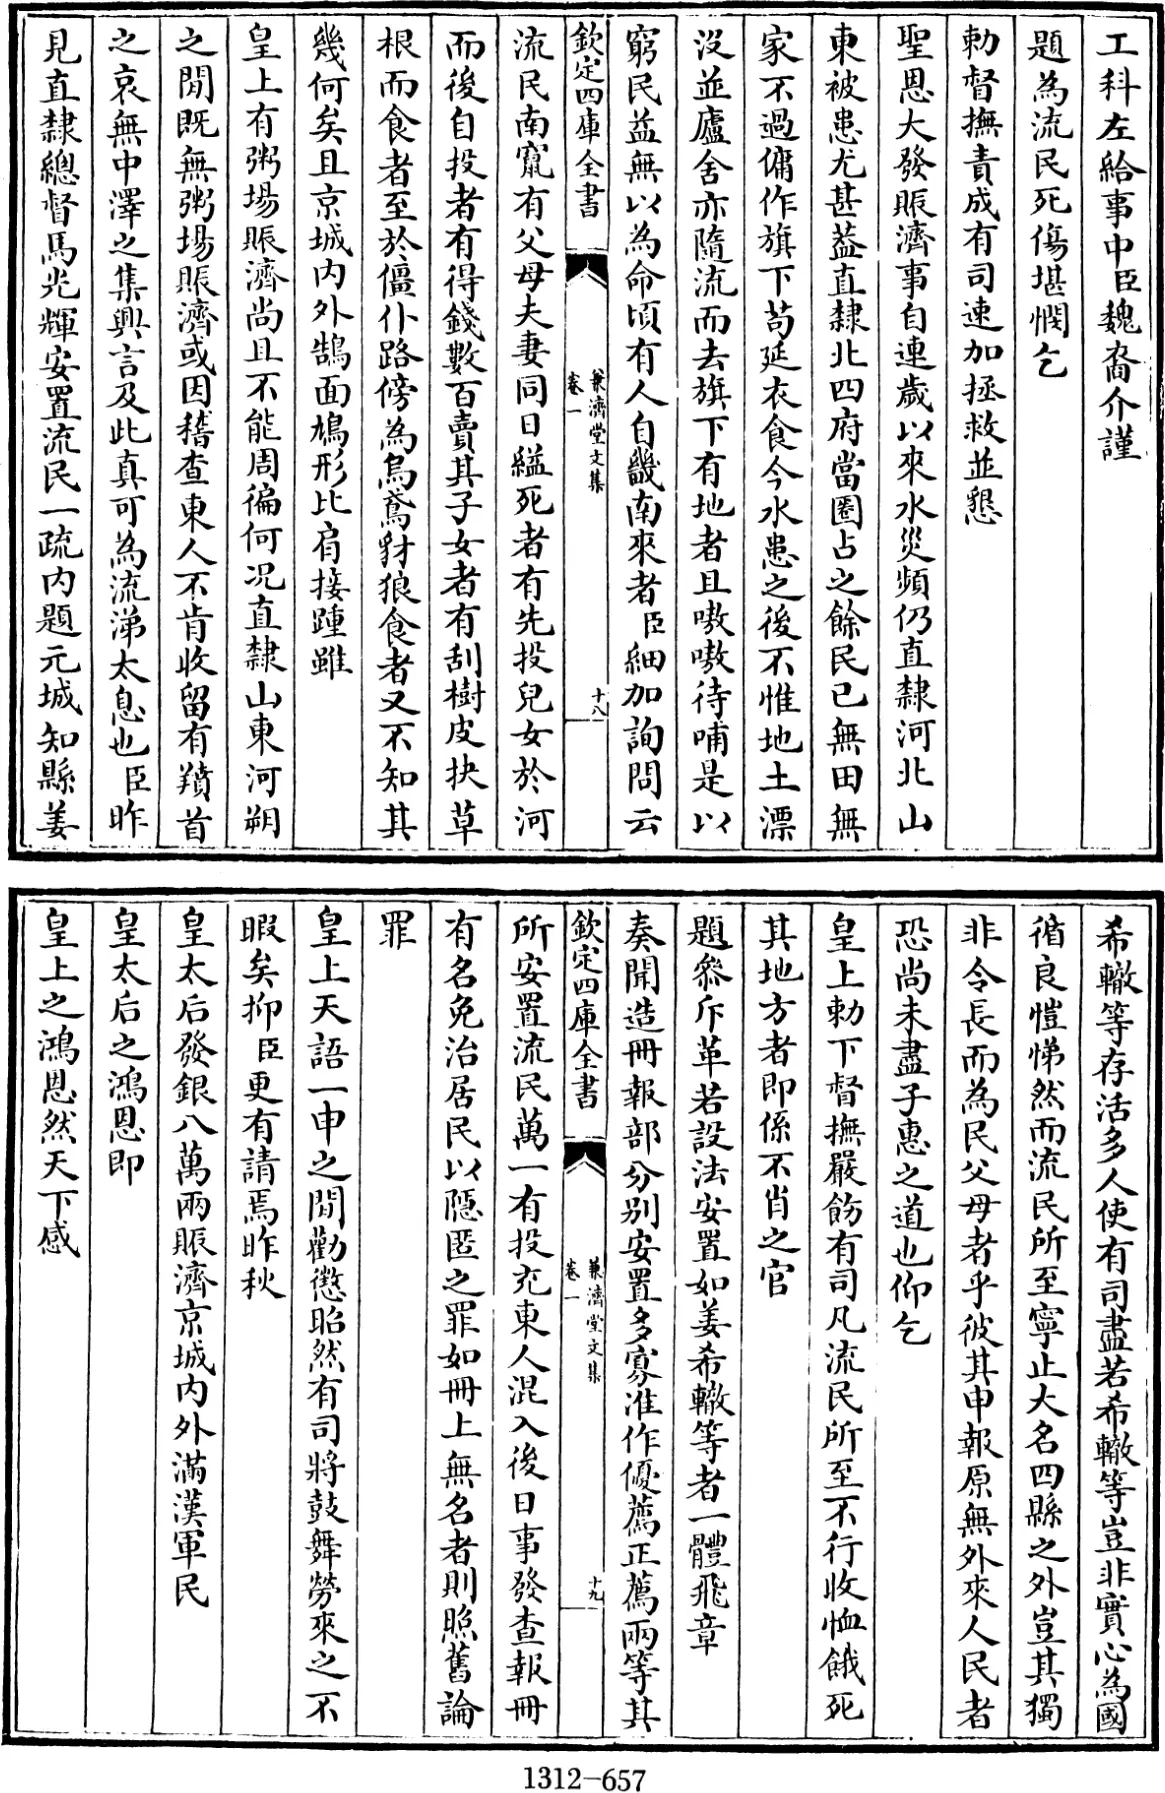 工科左給事中臣魏裔介謹
題為流民死傷堪憫乞
勅督撫責成有司速加拯救並懇
聖恩大發賑濟事自連歲以來水災頻仍直隸河北山
東被患尤甚葢直隸北四府當圈占之餘民已無田無
家不過傭作旗下苟延衣食今水患之後不惟地土漂
沒並廬舍亦隨流而去旗下有地者且嗷嗷待哺是以
窮民益無以為命頃有人自畿南來者臣細加詢問云
欽定四庫全書
兼濟堂文集
卷一
十八
流民南竄有父母夫妻同日縊死者有先投兒女於河
而後自投者有得錢數百賣其子女者有刮樹皮抉草
根而食者至於僵仆路傍為烏鳶豺狼食者又不知其
幾何矣且京城內外鵠面鳩形比肩接踵雖
皇上有粥場賑濟尚且不能周徧何况直隸山東河朔
之間既無粥場賑濟或因稽查東人不肯收留有羵首
之哀無中澤之集興言及此真可為流涕太息也臣昨
見直隸總督馬光輝安置流民一疏内題元城知縣姜
希轍等存活多人使有司盡若希轍等豈非實心為國
循良愷悌然而流民所至寧止大名四縣之外豈其獨
非令長而為民父母者乎彼其申報原無外來人民者
恐尚未盡子惠之道也仰乞
皇上勅下督撫嚴飭有司凡流民所至不行收恤餓死
其地方者即係不肖之官
題叅斥革若設法安置如姜希轍等者一體飛章
奏聞造冊報部分別安置多寡准作優薦正薦兩等其
欽定四庫全書
兼濟堂文集
卷一
十九
所安置流民萬一有投充東人混入後日事發查報冊
有名免治居民以隱匿之罪如冊上無名者則照舊論
罪
皇上天語一申之間勸懲昭然有司將鼓舞勞來之不
暇矣抑臣更有請焉昨秋
皇太后發銀八萬兩賑濟京城內外滿漢軍民
皇太后之鴻恩即
皇上之鴻恩然天下感
1312-657